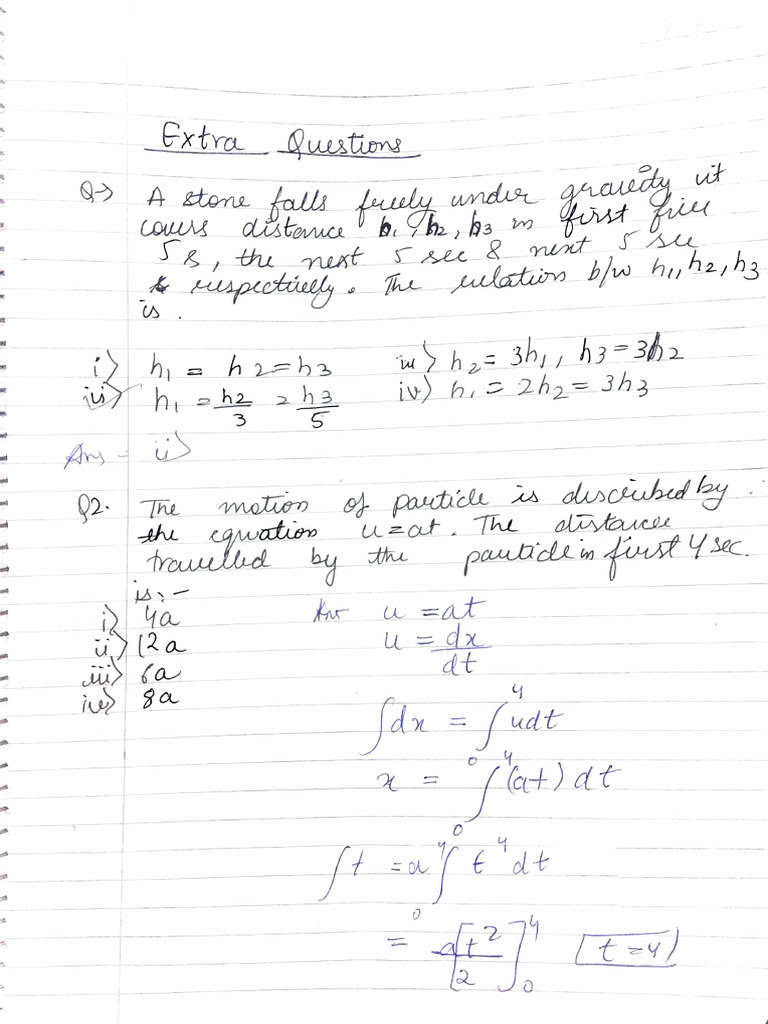 Extra Questions
Q→ A stone falls freely under gravity it
covers distance h1, h2, h3 in first five
5 s, the next 5 sec & next 5 sec
respectively. The relation b/w h1, h2, h3
is.
i) h1 = h2 = h3 iii) h2 = 3h1, h3 = 3h2
ii) h1 = h2/3 = h3/5 iv) h1 = 2h2 = 3h3
Ans - ii)
Q2. The motion of particle is described by
the equation u=at. The distance
travelled by the particle in first 4 sec.
is:-
i) 4a
ii) 12a
iii) 6a
iv) 8a
Ans u = at
u = dx/dt
∫dx = ∫₀⁴ udt
x = ∫₀⁴ (at) dt
∫t = a ∫₀⁴ t⁴ dt
= a[t²/2]₀⁴ [t=4]